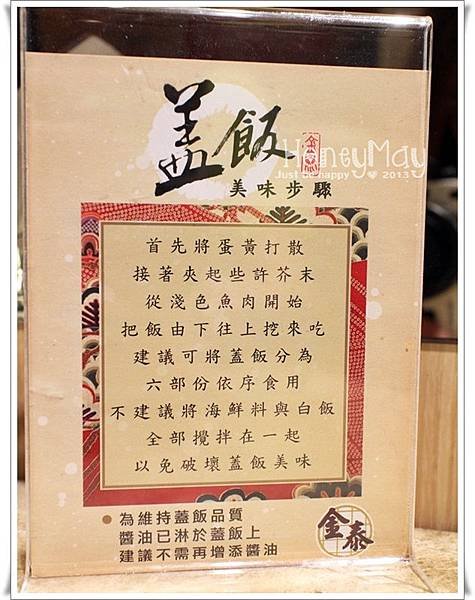 蓋飯
HoneyMay
Just be happy ♥ 2013
美味步驟
首先將蛋黃打散
接著夾起些許芥末
從淺色魚肉開始
把飯由下往上挖來吃
建議可將蓋飯分為
六部份依序食用
不建議將海鮮料與白飯
全部攪拌在一起
以免破壞蓋飯美味
● 為維持蓋飯品質
醬油已淋於蓋飯上
建議不需再增添醬油
金泰